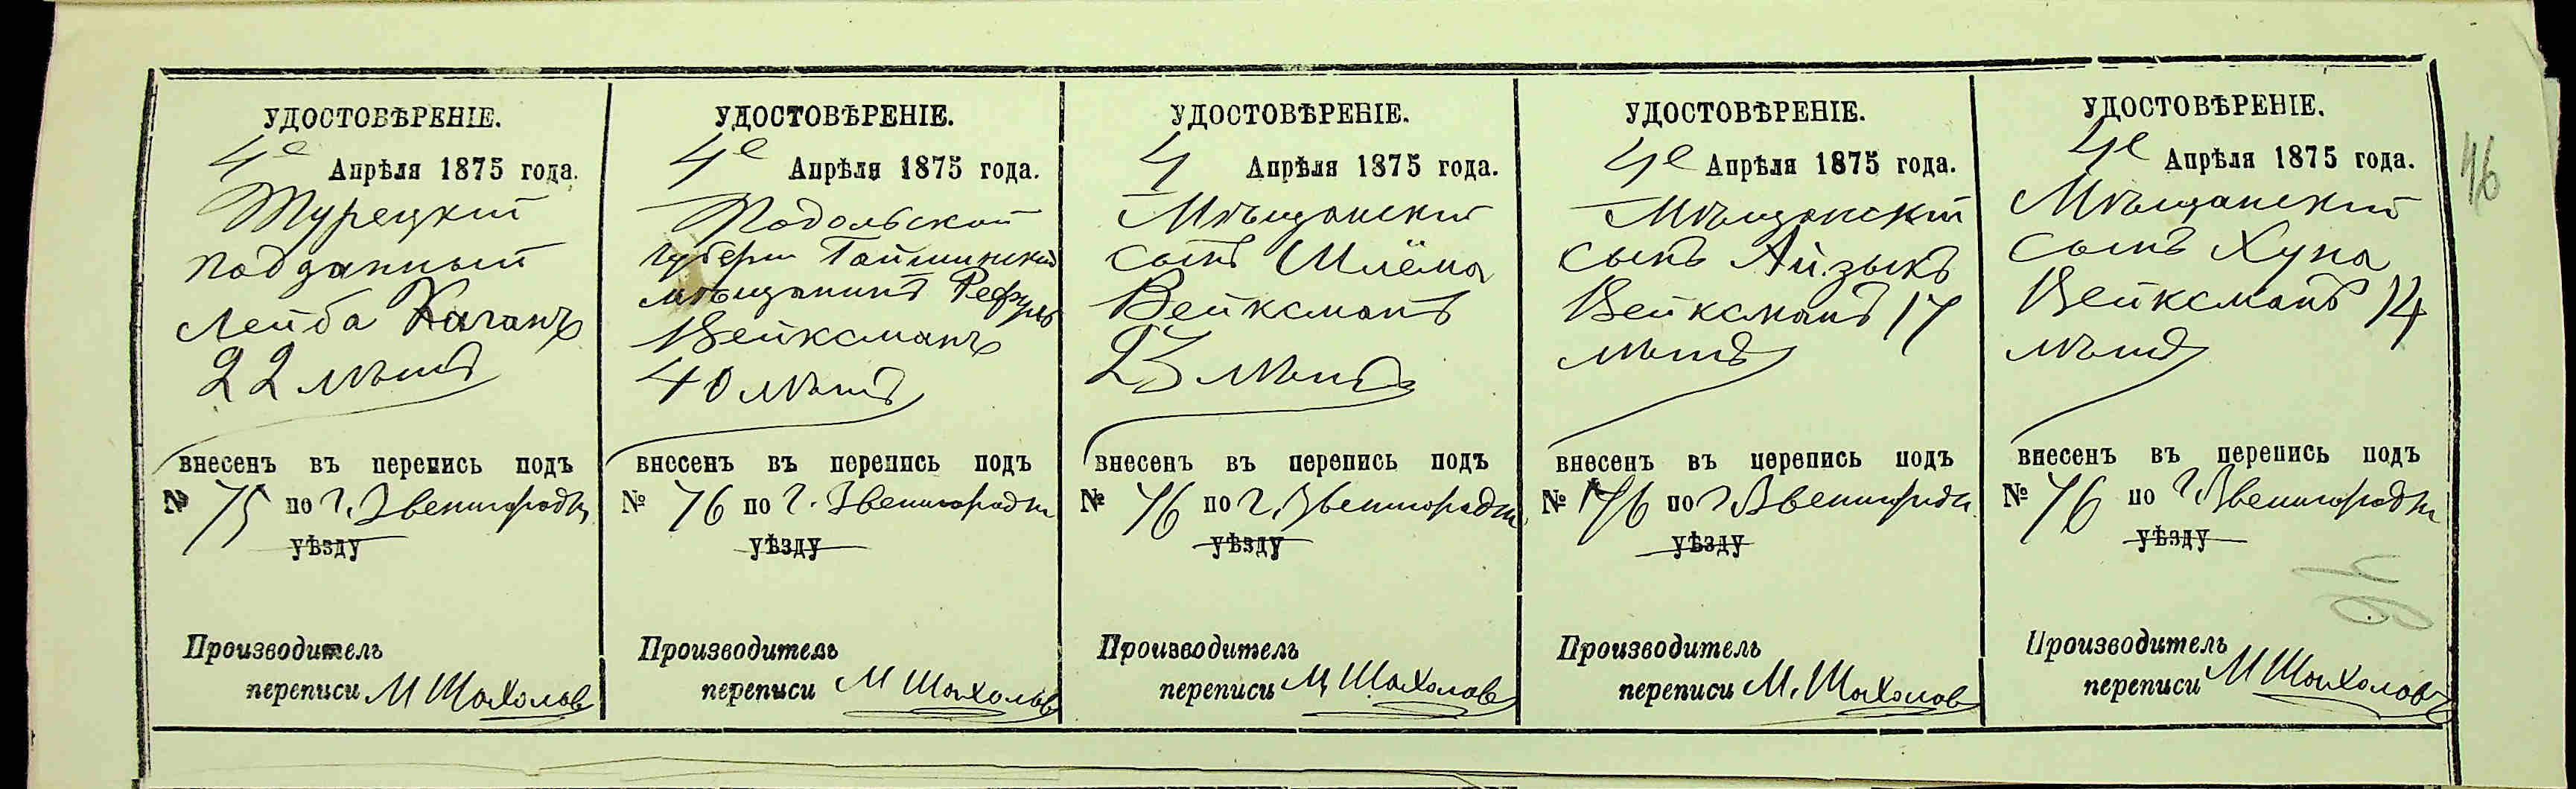 УДОСТОВѢРЕНІЕ.
4е Апрѣля 1875 года.
Турецкій
подданный
Лейба Каганъ
22 лѣтъ
внесенъ въ перепись подъ
№ 75 по г. Звенигородкѣ
уѣзду
Производитель
переписи М Шахолов
УДОСТОВѢРЕНІЕ.
4е Апрѣля 1875 года.
Подольской
губерніи
мѣщанинъ Рефуль
Вейксманъ
40 лѣтъ
внесенъ въ перепись подъ
№ 76 по г. Звенигородкѣ
уѣзду
Производитель
переписи М Шахолов
УДОСТОВѢРЕНІЕ.
4 Апрѣля 1875 года.
Мѣщанскій
сынъ Шлёма
Вейксманъ
23 лѣтъ
внесенъ въ перепись подъ
№ 76 по г. Звенигородкѣ
уѣзду
Производитель
переписи М Шахолов
УДОСТОВѢРЕНІЕ.
4е Апрѣля 1875 года.
Мѣщанскій
сынъ Айзыкъ
Вейксманъ 17
лѣтъ
внесенъ въ перепись подъ
№ 76 по г Звенигородкѣ
уѣзду
Производитель
переписи М. Шахолов
УДОСТОВѢРЕНІЕ.
4е Апрѣля 1875 года.
Мѣщанскій
сынъ Хуна
Вейксманъ 14
лѣтъ
внесенъ въ перепись подъ
№ 76 по г Звенигородкѣ
уѣзду
Производитель
переписи М Шахоловъ
76